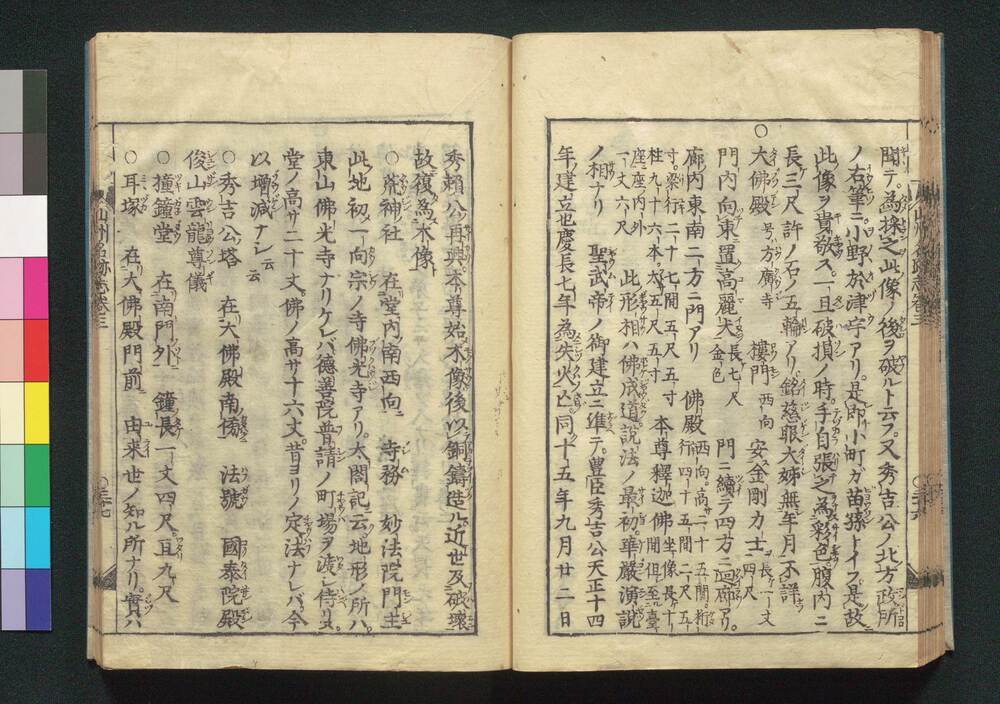 聞テ為操之此像ノ後ヲ破ルト云フ又秀吉公ノ北方政所
ノ右筆ニ小野ノ於津宇アリ是即小町ガ苗孫トイフ是故ニ
此像ヲ貴敬ス一旦破損ノ時手自張之為彩色腹内ニ
長三尺許ノ石ノ五輪アリ銘慈眼大姉無年月不詳
○大佛殿 号方廣寺 樓門 西向 安金剛力士 長一丈四尺
門内向東置高麗犬 長七尺金色 門ニ續テ四方ニ廻廊アリ
廊内東南二方ニ門アリ 佛殿 西向高二十五間桁行四十五間二尺五
寸梁行二十七間五尺五寸 本尊釋迦佛坐像長十
柱九十六本太五尺五寸
座座内外 間但至臺
一丈六尺
ノ相ナリ 此形相ハ佛成道説法ノ最初華嚴演説
聖武帝ノ御建立ニ準テ豊臣秀吉公天正十四
年ノ建立也慶長七年為失火亡同十五年九月廿二日
山州名跡志巻三
秀頼公再興本尊始木像後以銅鑄造ル近世及破壊
故復為木像
○荒神社 在堂内南西向 寺務 妙法院門主
此地初一向宗ノ寺佛光寺アリ太閤記云地形ノ所ハ
東山佛光寺ナリケレバ德善院普請ノ町場ヲ渡シ侍リヌ
堂ノ高サ二十丈佛ノ高サ十六丈昔ヨリノ定法ナレバ今
以增減ナシ云云
○秀吉公塔 在大佛殿南傍 法號 國泰院殿
俊山雲龍尊儀
○撞鐘堂 在南門外 鐘長一丈四尺亘九尺
○耳塚 在大佛殿門前 由来世ノ知ル所ナリ實ハ
山州名跡志巻三